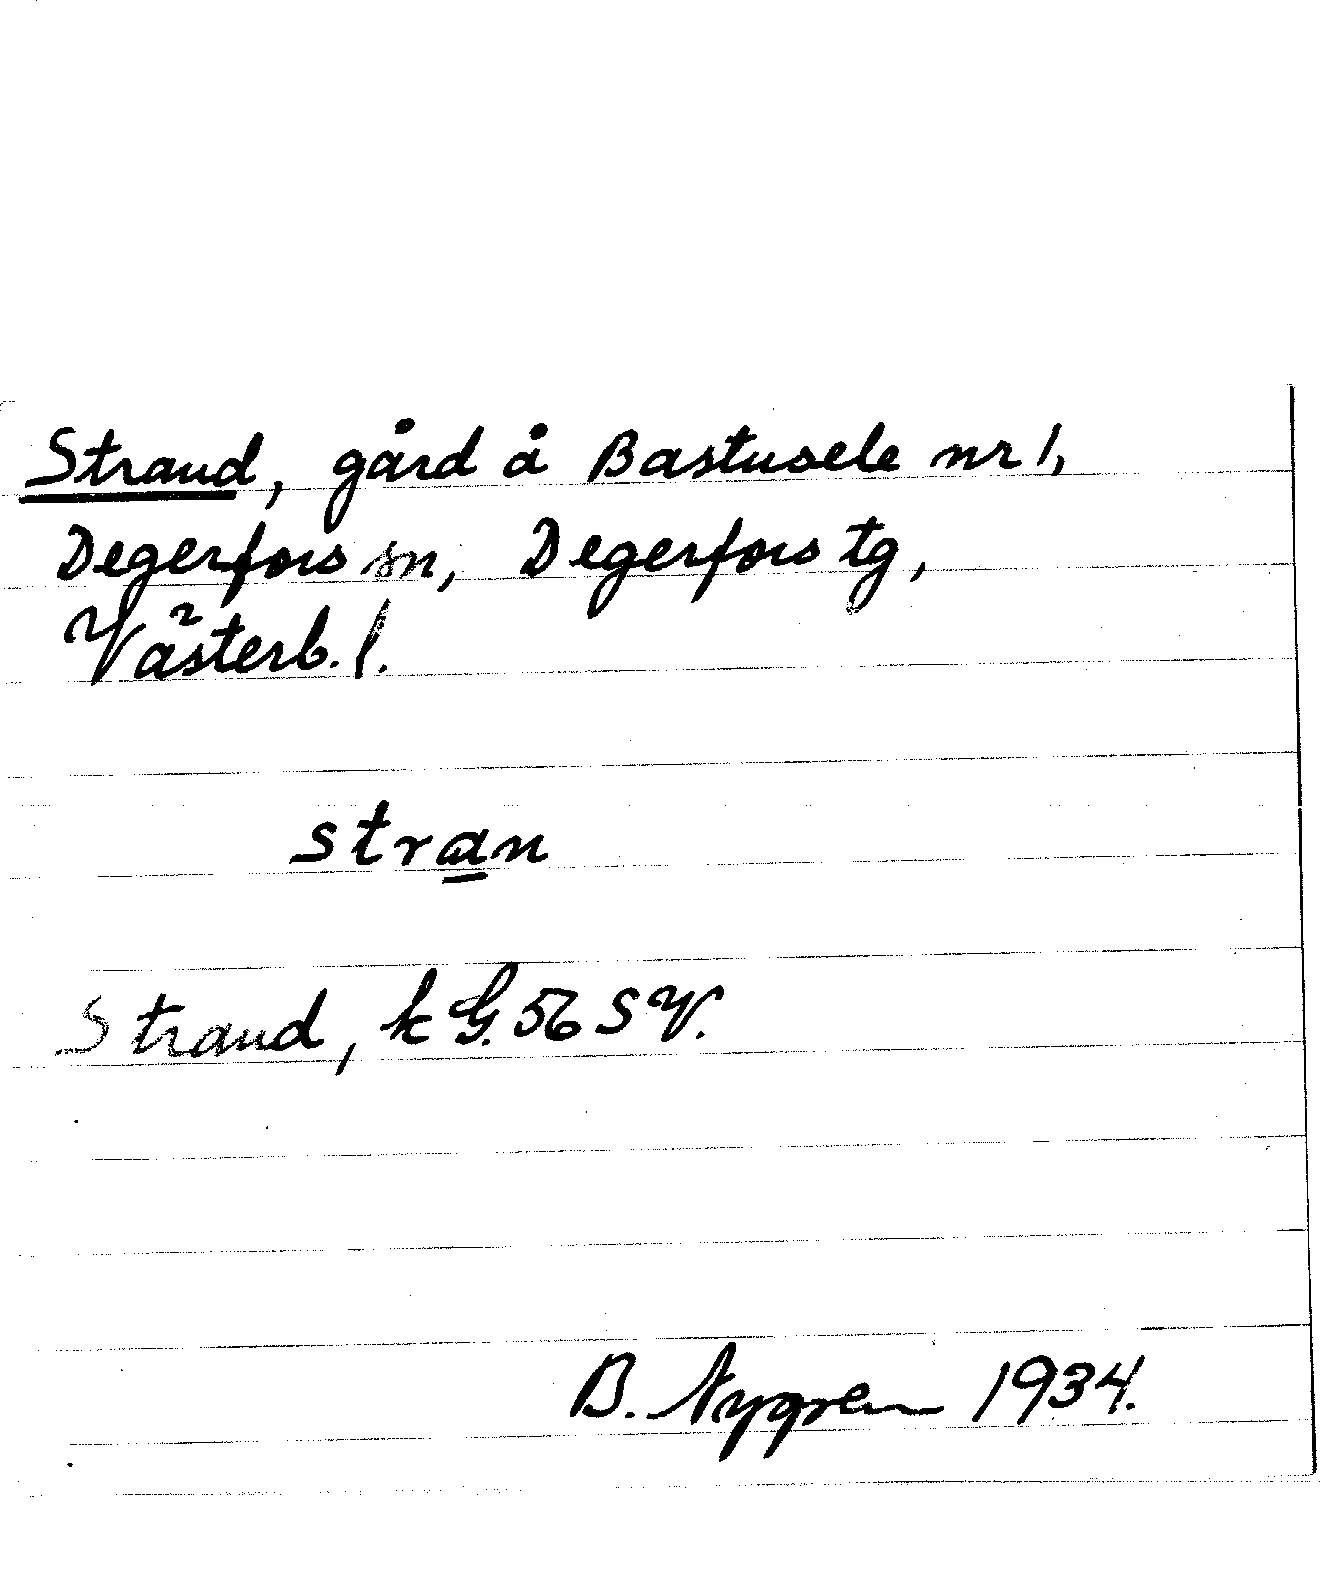 Strand, gård å Bastusele nr 1,
Degerfors sn, Degerfors tg,
Västerb. l.
stran
Strand, k G. 56 SV.
B. Nygren 1934.